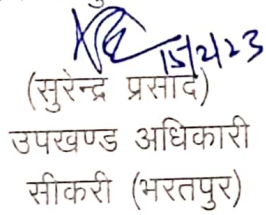 15/2/23
(सुरेन्द्र प्रसाद)
उपखण्ड अधिकारी
सीकरी (भरतपुर)